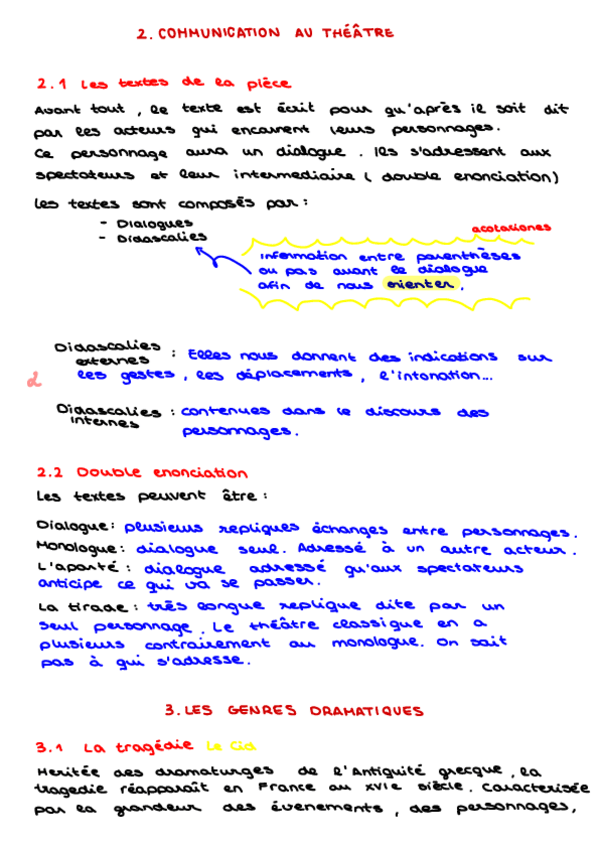 2. COMMUNICATION AU THÉÂTRE
2.1 Les textes de la pièce
Avant tout, le texte est écrit pour qu'après il soit dit
par les acteurs qui encarnent leurs personnages.
Ce personnage aura un dialogue. Ils s'adressent aux
spectateurs et leur intermediaire (double enonciation)
Les textes sont composés par:
- Dialogues
- Didascalies
acotaciones
Information entre parenthèses
ou pas avant le dialogue
afin de nous orienter.
Didascalies externes : Elles nous donnent des indications sur
les gestes, les déplacements, l'intonation...
Didascalies internes : contenues dans le discours des
personnages.
2.2 Double enonciation
Les textes peuvent être:
Dialogue: plusieurs repliques échanges entre personnages.
Monologue: dialogue seul. Adressé à un autre acteur.
L'aparté: dialogue adressé qu'aux spectateurs
anticipe ce qui va se passer.
La tirade: très longue replique dite par un
seul personnage. Le théâtre classique en a
plusieurs contrairement au monologue. On sait
pas à qui s'adresse.
3. LES GENRES DRAMATIQUES
3.1 La tragédie Le Cid
Heritée des dramaturges de l'Antiquité grecque, la
tragedie réapparaît en France au XVIe siècle. Caracterisée
par la grandeur des évenements, des personnages,